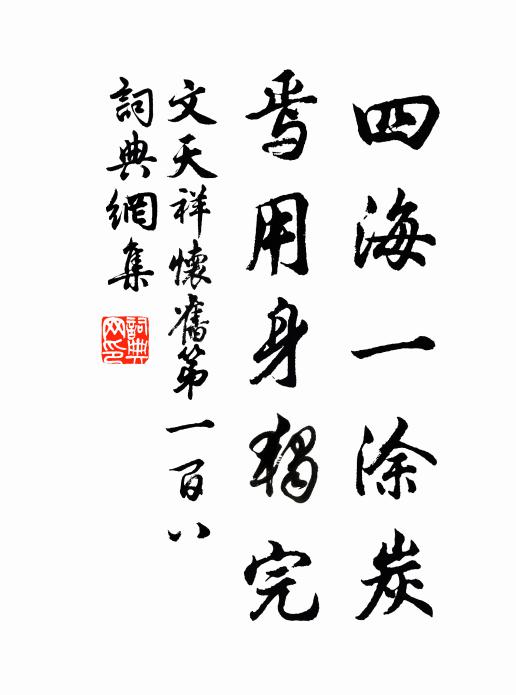 四海一涂炭
焉用身獨完
文天祥懷舊第一百八
詞典網集
詞典網印